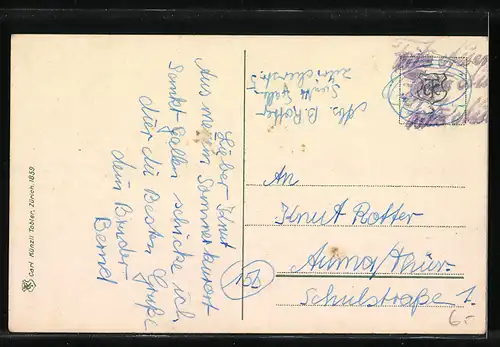 Lieber Knut
Aus meinem Sommerkurort
Sankt Gallen schicke ich
dir die Besten Grüße
dein Bruder
Bernd
Abs. B. Rotter
Sankt Gallen
Zürcherstr. 5
An
Knut Rotter
Auma/Thür.
Schulstraße 1.
15b
6.-
Carl Künzli Tobler, Zürich. 1839